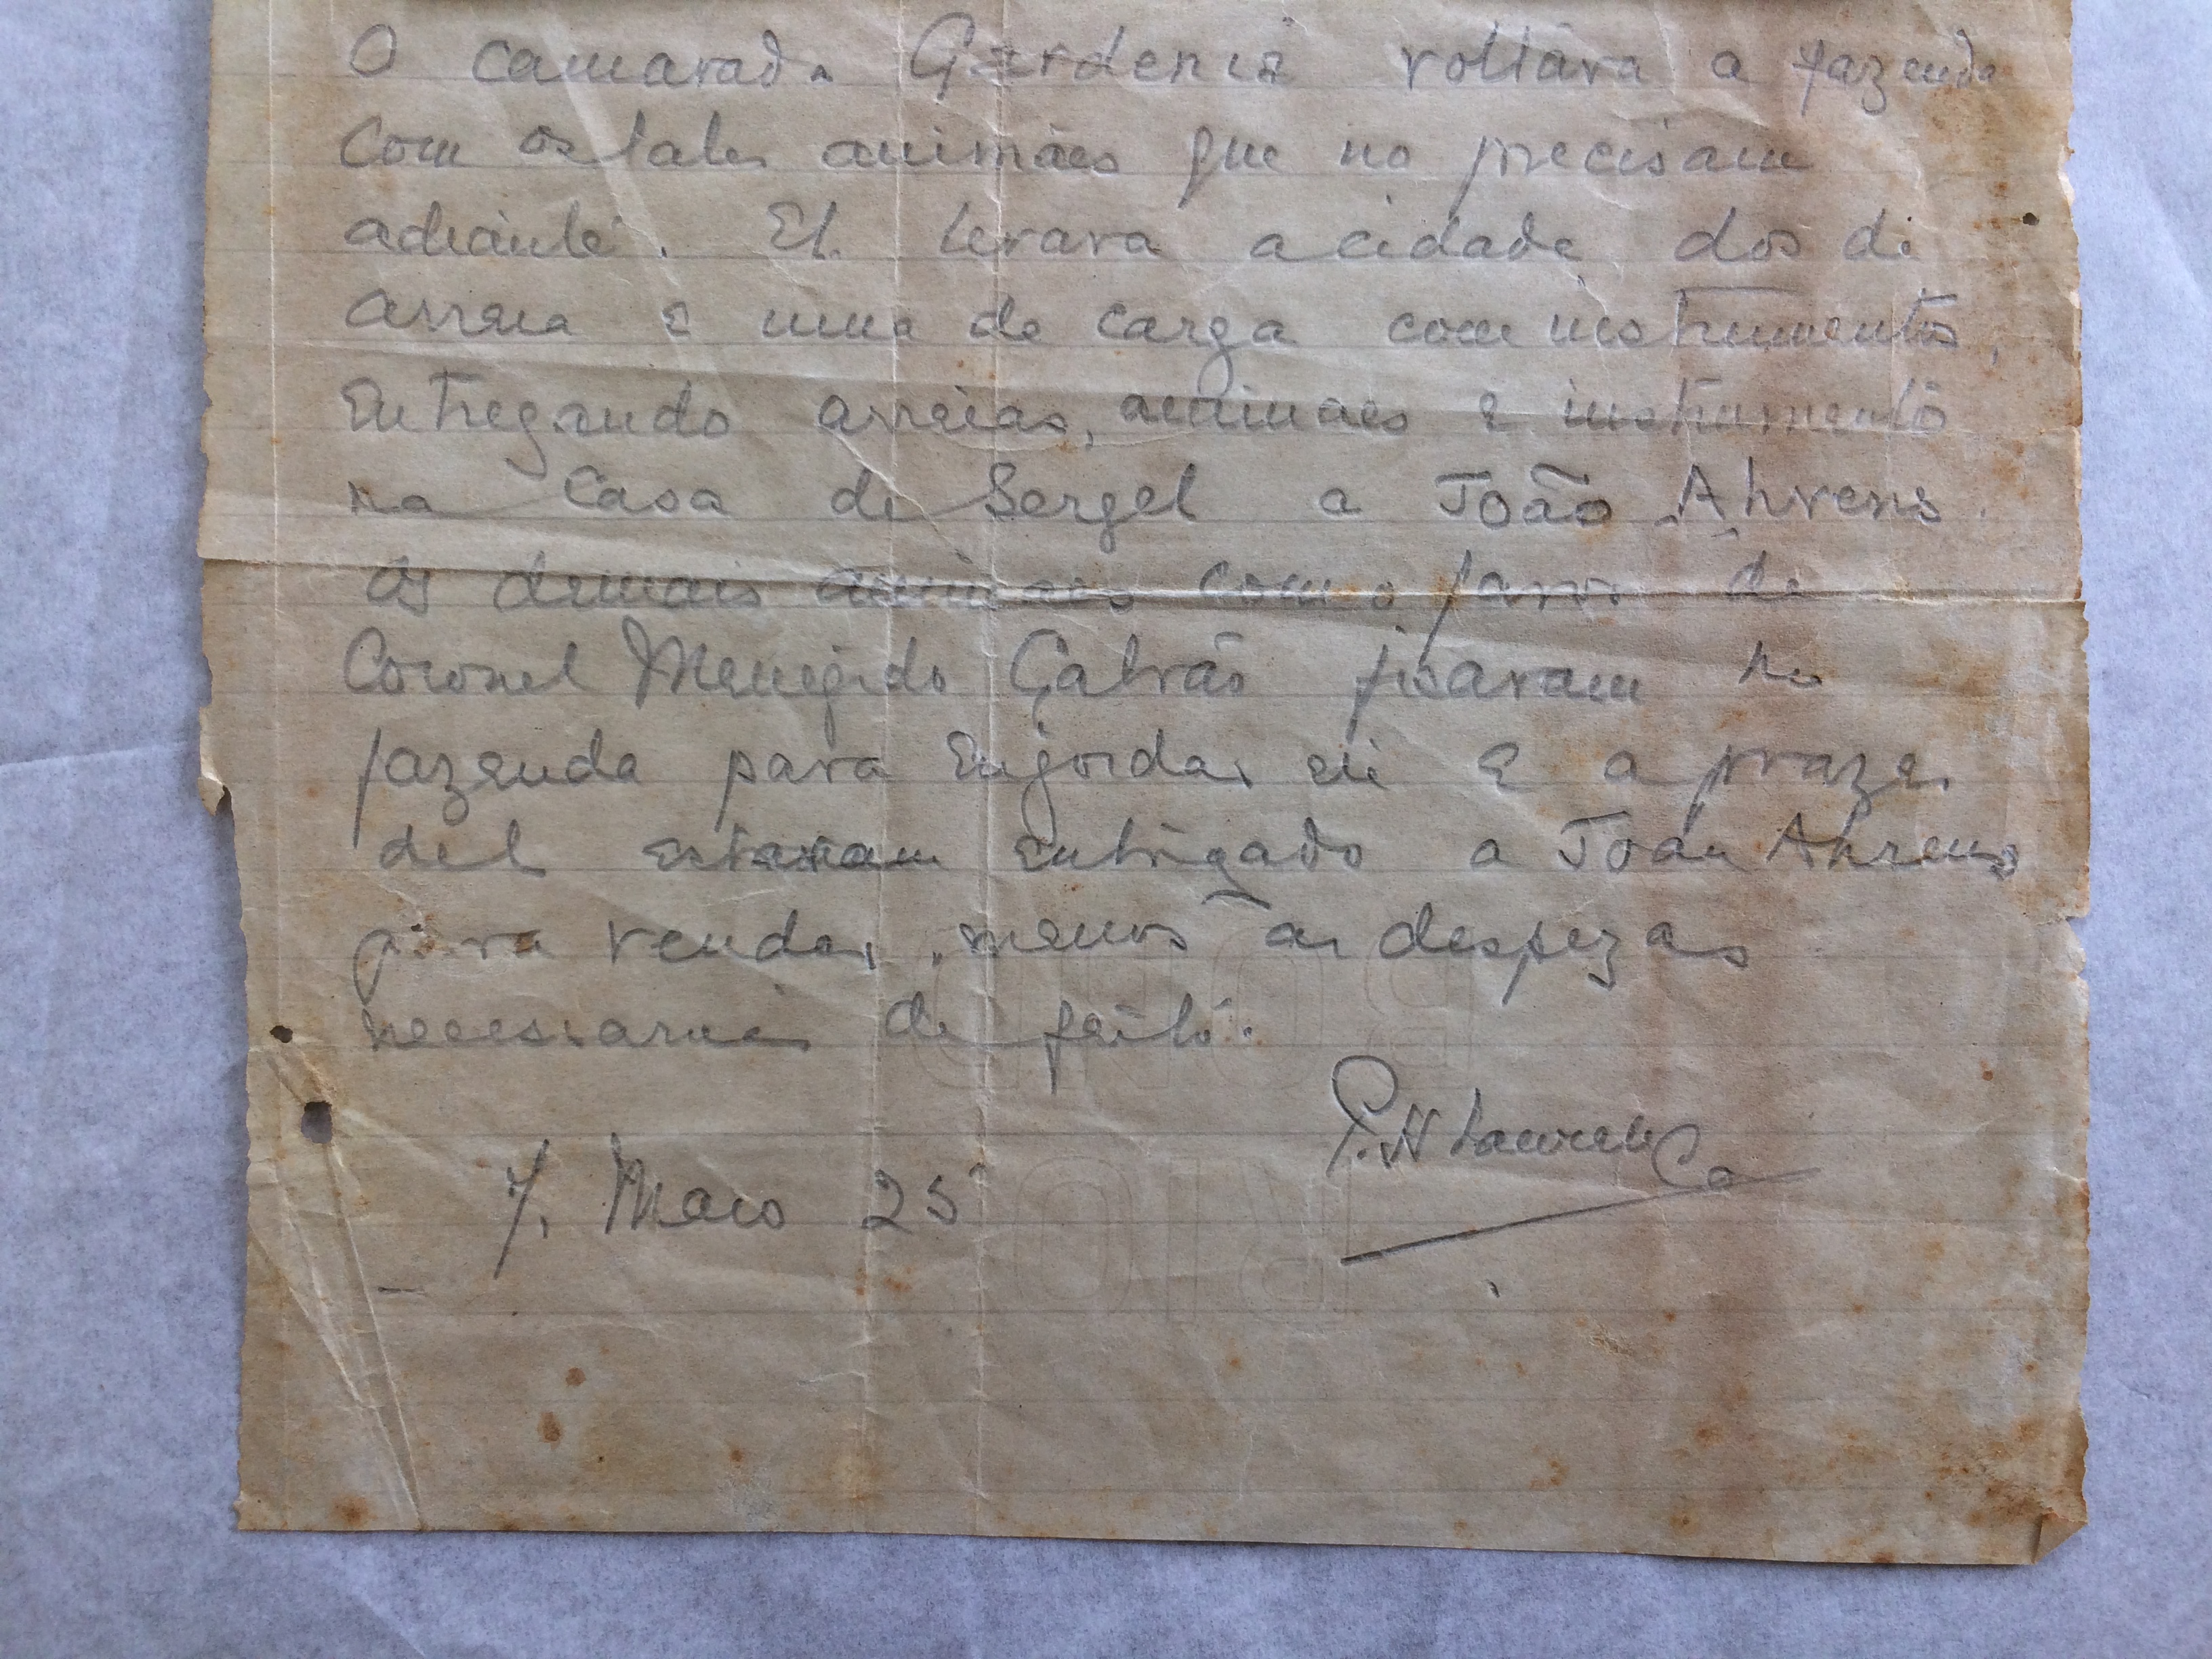 O camarada Gardenia voltára a fazenda
com os tales animáes que no precisam
adiante. El levara a cidade dos di
arreia e uma de carga com instrumentos,
Entregando arreias, animaes e instrumento
na Casa de Sergel a João Ahrens.
Os demais animaes com o favor de
Coronel Galvão ficaram na
fazenda para Engordar e a prazer
del estaram entrigado a João Ahrens
para vender, menos as despezas
necessarias de feito.
P. H.
7. Maio 25
BOND
RIO